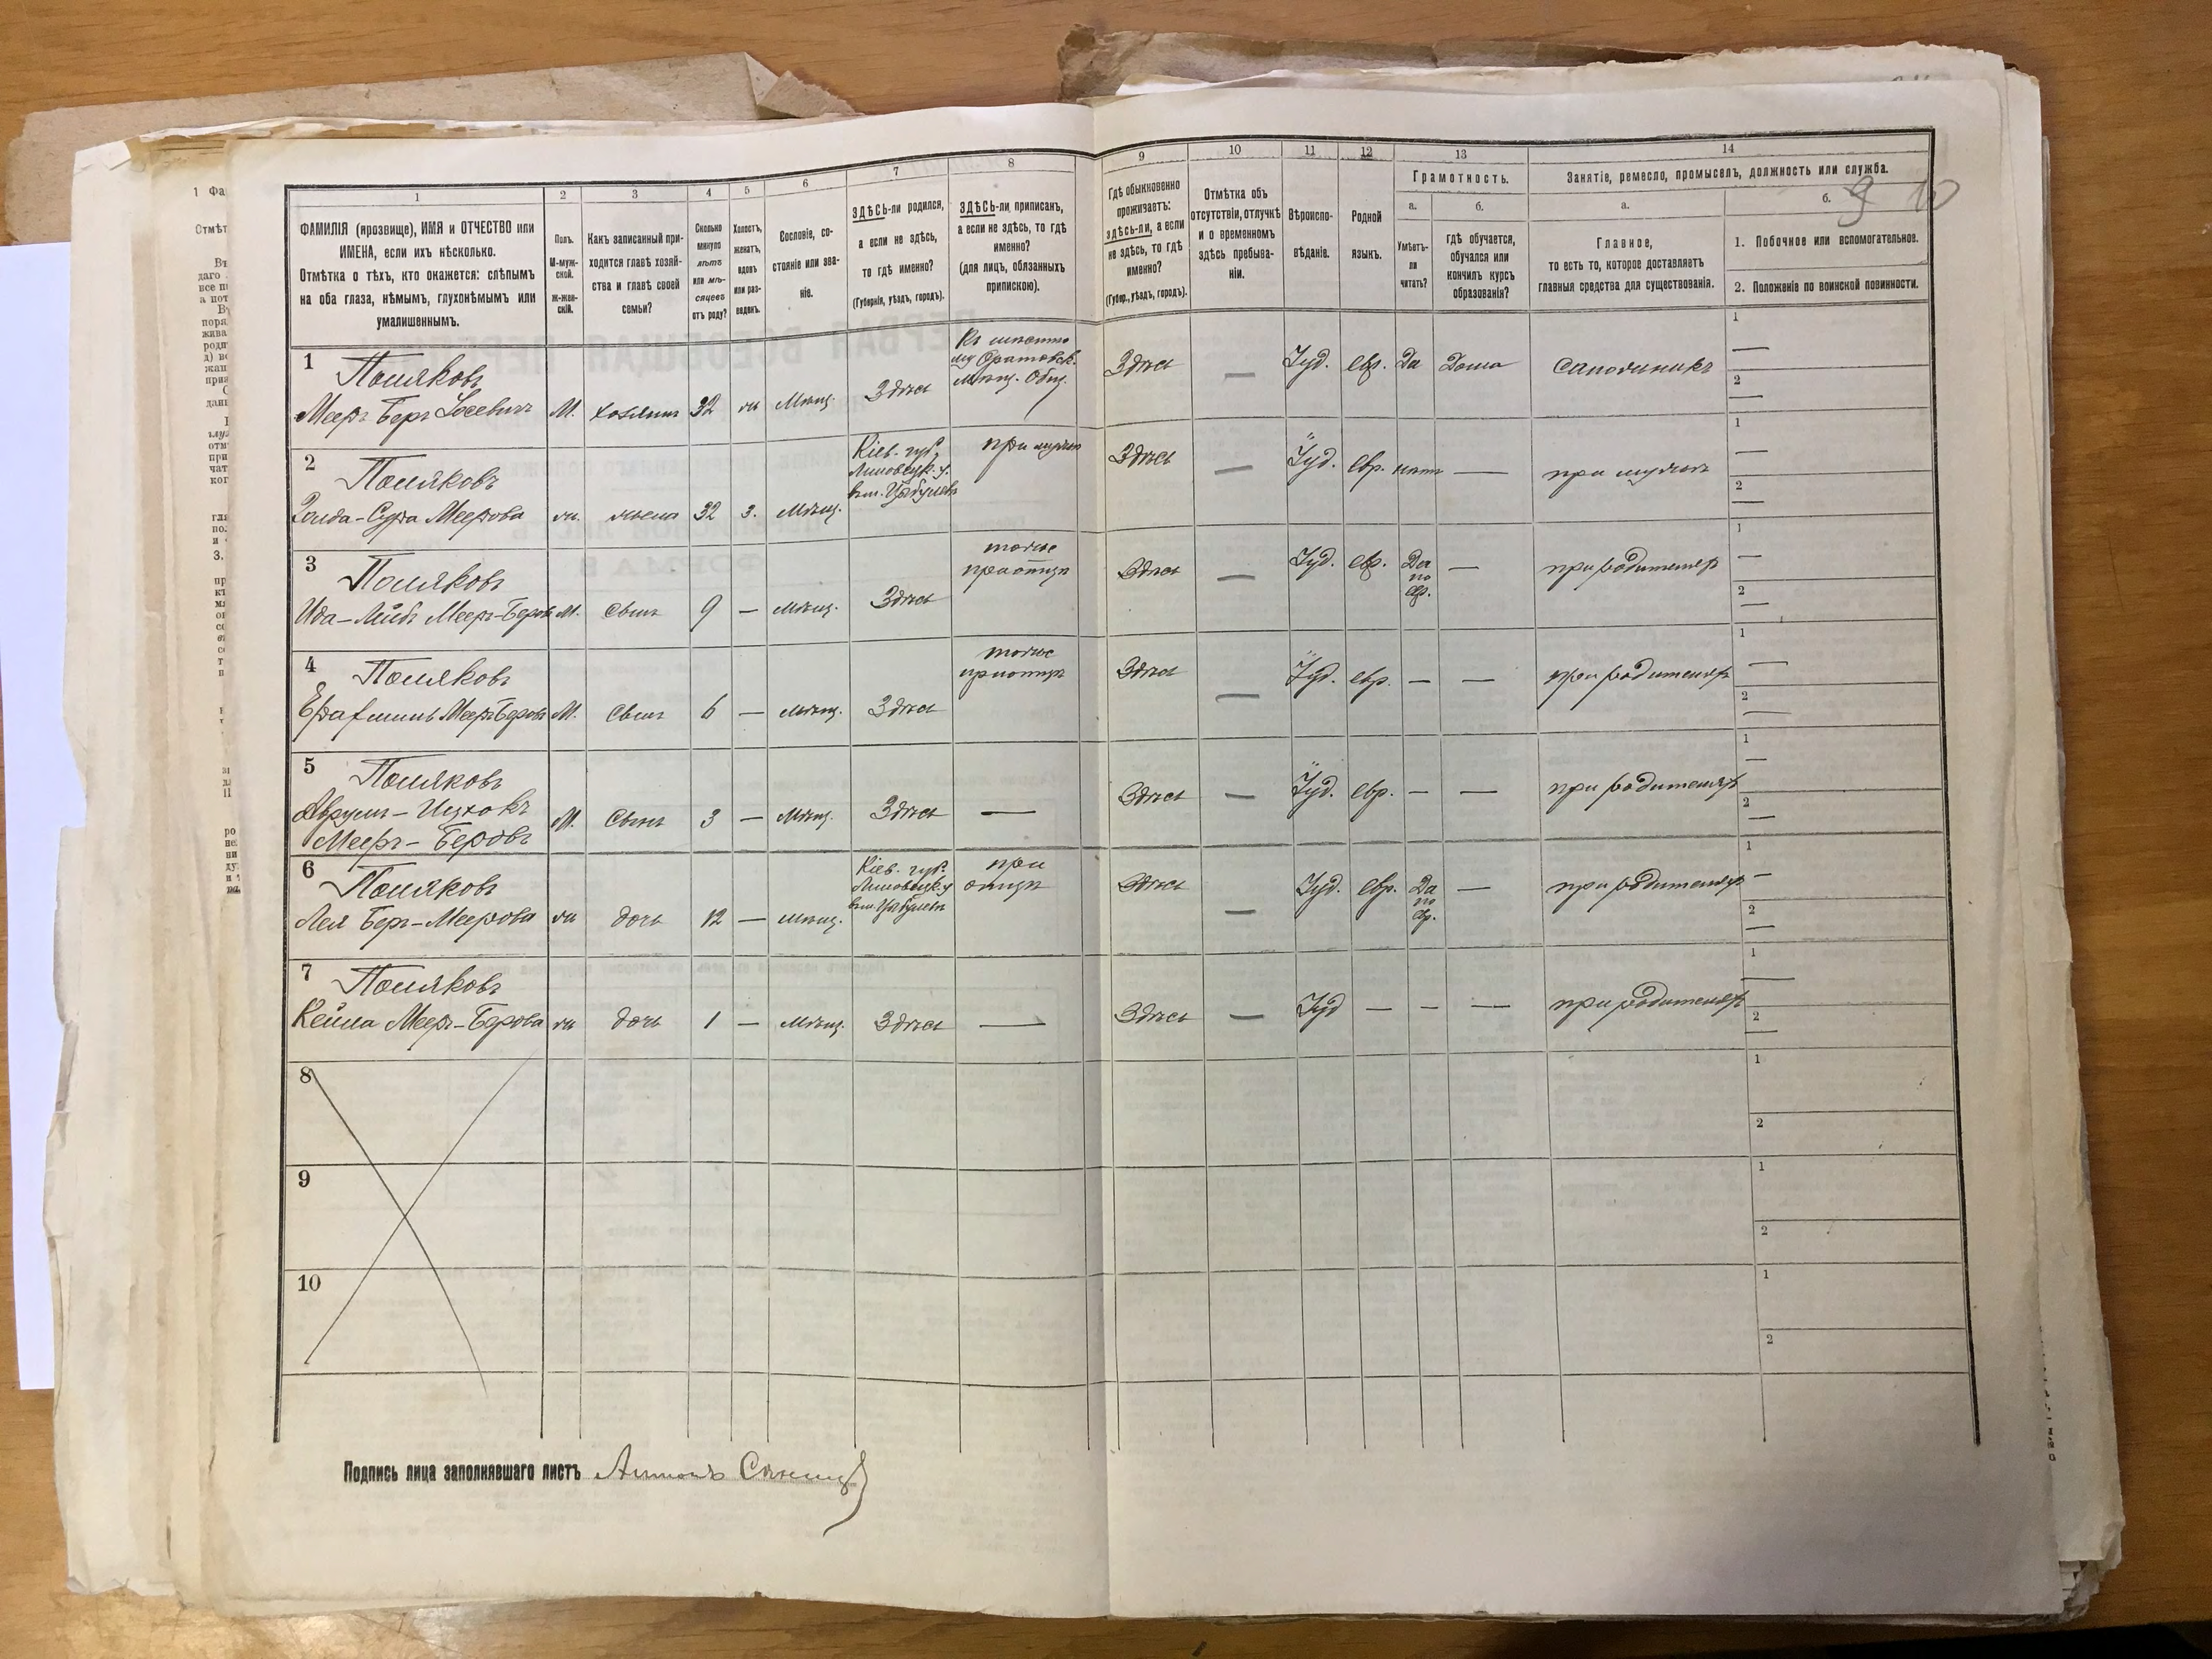 1
2
3
4
5
6
7
8
9
10
11
12
13
14
ФАМИЛІЯ (прозвище), ИМЯ и ОТЧЕСТВО или
ИМЕНА, если ихъ нѣсколько.
Отмѣтка о тѣхъ, кто окажется: слѣпымъ
на оба глаза, нѣмымъ, глухонѣмымъ или
умалишеннымъ.
Полъ.
М-муж-
ской.
Ж-жен-
скій.
Какъ записанный при-
ходится главѣ хозяй-
ства и главѣ своей
семьи?
Сколько
минуло
лѣтъ
или мѣ-
сяцевъ
отъ роду?
Холостъ,
женатъ,
вдовъ
или раз-
веденъ.
Сословіе, со-
стояніе или зва-
ніе.
ЗДѢСЬ-ли родился,
а если не здѣсь,
то гдѣ именно?
(Губернія, уѣздъ, городъ).
ЗДѢСЬ-ли приписанъ,
а если не здѣсь, то гдѣ
именно?
(для лицъ, обязанныхъ
припискою).
Гдѣ обыкновенно
проживаетъ:
здѣсь-ли, а если
не здѣсь, то гдѣ
именно?
(Губер., уѣздъ, городъ).
Отмѣтка объ
отсутствіи, отлучкѣ
и о временномъ
здѣсь пребыва-
ніи.
Вѣроиспо-
вѣданіе.
Родной
языкъ.
Грамотность.
а.
Умѣетъ-
ли
читать?
б.
гдѣ обучается,
обучался или
кончилъ курсъ
образованія?
Занятіе, ремесло, промыселъ, должность или служба.
а.
Главное,
то есть то, которое доставляетъ
главныя средства для существованія.
б.
9 10
1. Побочное или вспомогательное.
2. Положеніе по воинской повинности.
1
Поляковъ
Мееръ Беръ Іосевичъ М. хозяинъ 32 ж Мѣщ. Здѣсь
Мѣщ. Общ.
Здѣсь — Іуд. евр. Да Дома сапожникъ
1 —
2 —
2
Поляковъ
Голда-Сура Меерова ж. жена 32 з. Мѣщ.
Кіев. губ.
Липовецк. у.
при мужѣ
Здѣсь — Іуд. евр. нѣтъ — при мужѣ
1 —
2 —
3
Поляковъ
М. Сынъ 9 — Мѣщ. Здѣсь
тоже
при отцѣ
Здѣсь — Іуд. евр. Да
по
евр.
— при родителяхъ
1 —
2 —
4
Поляковъ
М. Сынъ 6 — Мѣщ. Здѣсь
тоже
при отцѣ
Здѣсь — Іуд. евр. — — при родителяхъ
1 —
2 —
5
Поляковъ
Аврумъ-Ицхокъ
Мееръ-Беровъ
М. Сынъ 3 — Мѣщ. Здѣсь —
Здѣсь — Іуд. евр. — — при родителяхъ
1 —
2 —
6
Поляковъ
Лея Беръ-Меерова ж дочь 12 — Мѣщ.
Кіев. губ.
Липовецк. у
при
отцѣ
Здѣсь — Іуд. евр. Да
по
евр.
— при родителяхъ
1 —
2 —
7
Поляковъ
Кейла Мееръ-Берова ж дочь 1 — Мѣщ. Здѣсь —
Здѣсь — Іуд — — — при родителяхъ
1 —
2 —
8
1
2
9
1
2
10
1
2
Подпись лица заполнявшаго листъ